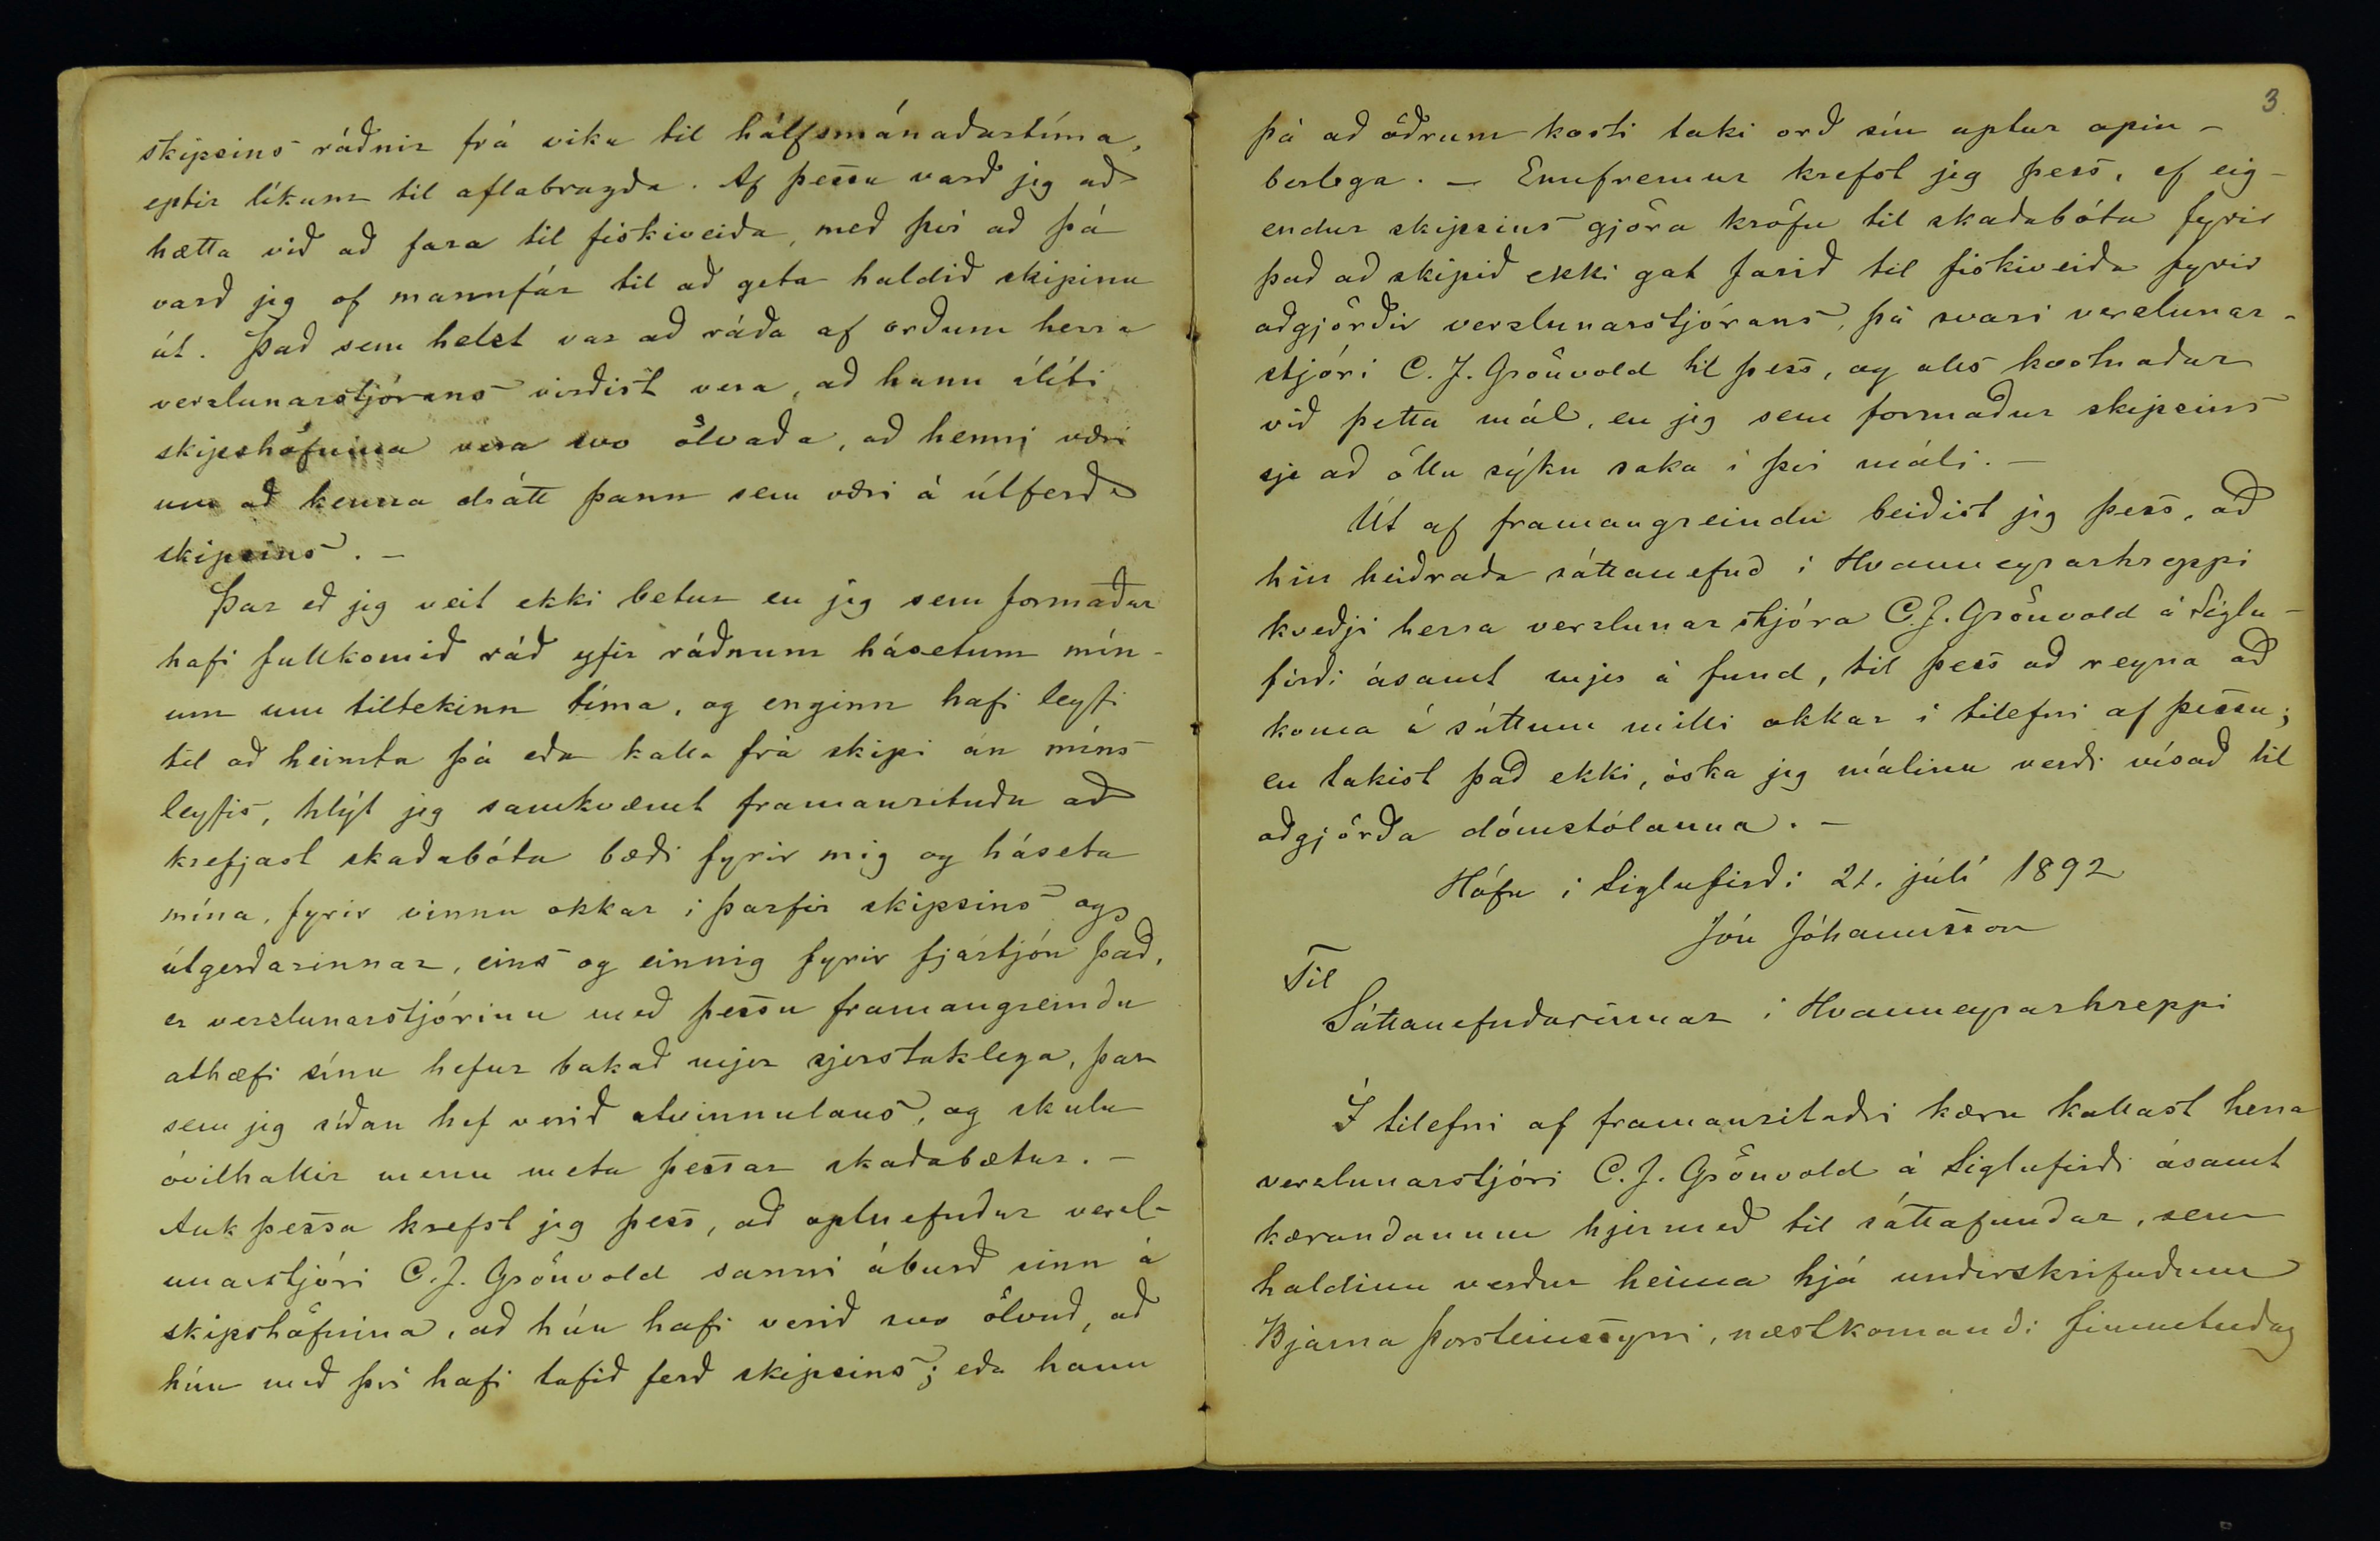 skipsins ráðnir frá viku til hálfsmánaðartíma,
eptir líkum til aflabragða. Af þessu varð jeg að
hætta við að fara til fiskiveiða, með því að þá
varð jeg of mannfár til að geta haldið skipinu
út. Það sem helst var að ráða af orðum herra
verzlunarstjórans virðist vera, að hann áliti
skipshöfnina vera svo ölvaða, að henni væri
um að kenna drátt þann sem væri á útferð
skipsins. –
Þar eð jeg veit ekki betur en jeg sem formaður
hafi fullkomið ráð yfir ráðnum hásetum mín-
um um tiltekinn tíma, og enginn hafi leyfi
til að heimta þá eða kalla frá skipi án míns
leyfis, hlýt jeg samkvæmt framanrituðu að
krefjast skaðabóta bæði fyrir mig og háseta
mína, fyrir vinnu okkar í þarfir skipsins og
útgerðarinnar, eins og einnig fyrir fjártjón það,
er verzlunarstjórinn með þessu framangreindu
athæfi sínu hefur bakað mjer sjerstaklega, þar
sem jeg síðan hef verið atvinnulaus, og skulu
óvilhallir menn meta þessar skaðabætur. –
Auk þessa krefst jeg þess, að optnefndur verzl-
unarstjóri C. J. Grönvold sanni áburð sinn á
skipshöfnina, að hún hafi verið svo ölvuð, að
hún með því hafi tafið ferð skipsins; eða hann
3.
þá að öðrum kosti taki orð sín aptur opin-
berlega. – Ennfremur krefst jeg þess, ef eig-
endur skipsins gjöra kröfu til skaðabóta fyrir
það að skipið ekki gat farið til fiskiveiða fyrir
aðgjörðir verzlunarstjórans, þá svari verzlunar-
stjóri C. J. Grönvold til þess, og alls kostnaðar
við þetta mál, en jeg sem formaður skipsins
sje að öllu sýkn saka í því máli. –
Út af framangreindu beiðist jeg þess, að
hin heiðraða sáttanefnd í Hvanneyrarhreppi
kveðji herra verzlunarstjóra C. J. Grönvold á Siglu-
firði ásamt mjer á fund, til þess að reyna að
koma á sáttum milli okkar í tilefni af þessu;
en takist það ekki, óska jeg málinu verði vísað til
aðgjörða dómstólanna. –
Höfn í Siglufirði 21. júlí 1892
Jón Jóhannsson
Til
Sáttanefndarinnar í Hvanneyrarhreppi
Í tilefni af framanritaðri kæru kallast herra
verzlunarstjóri C. J. Grönvold á Siglufirði ásamt
kærandanum hjermeð til sáttafundar, sem
haldinn verður heima hjá undirskrifuðum
Bjarna Þorsteinssyni, næstkomandi fimmtudag